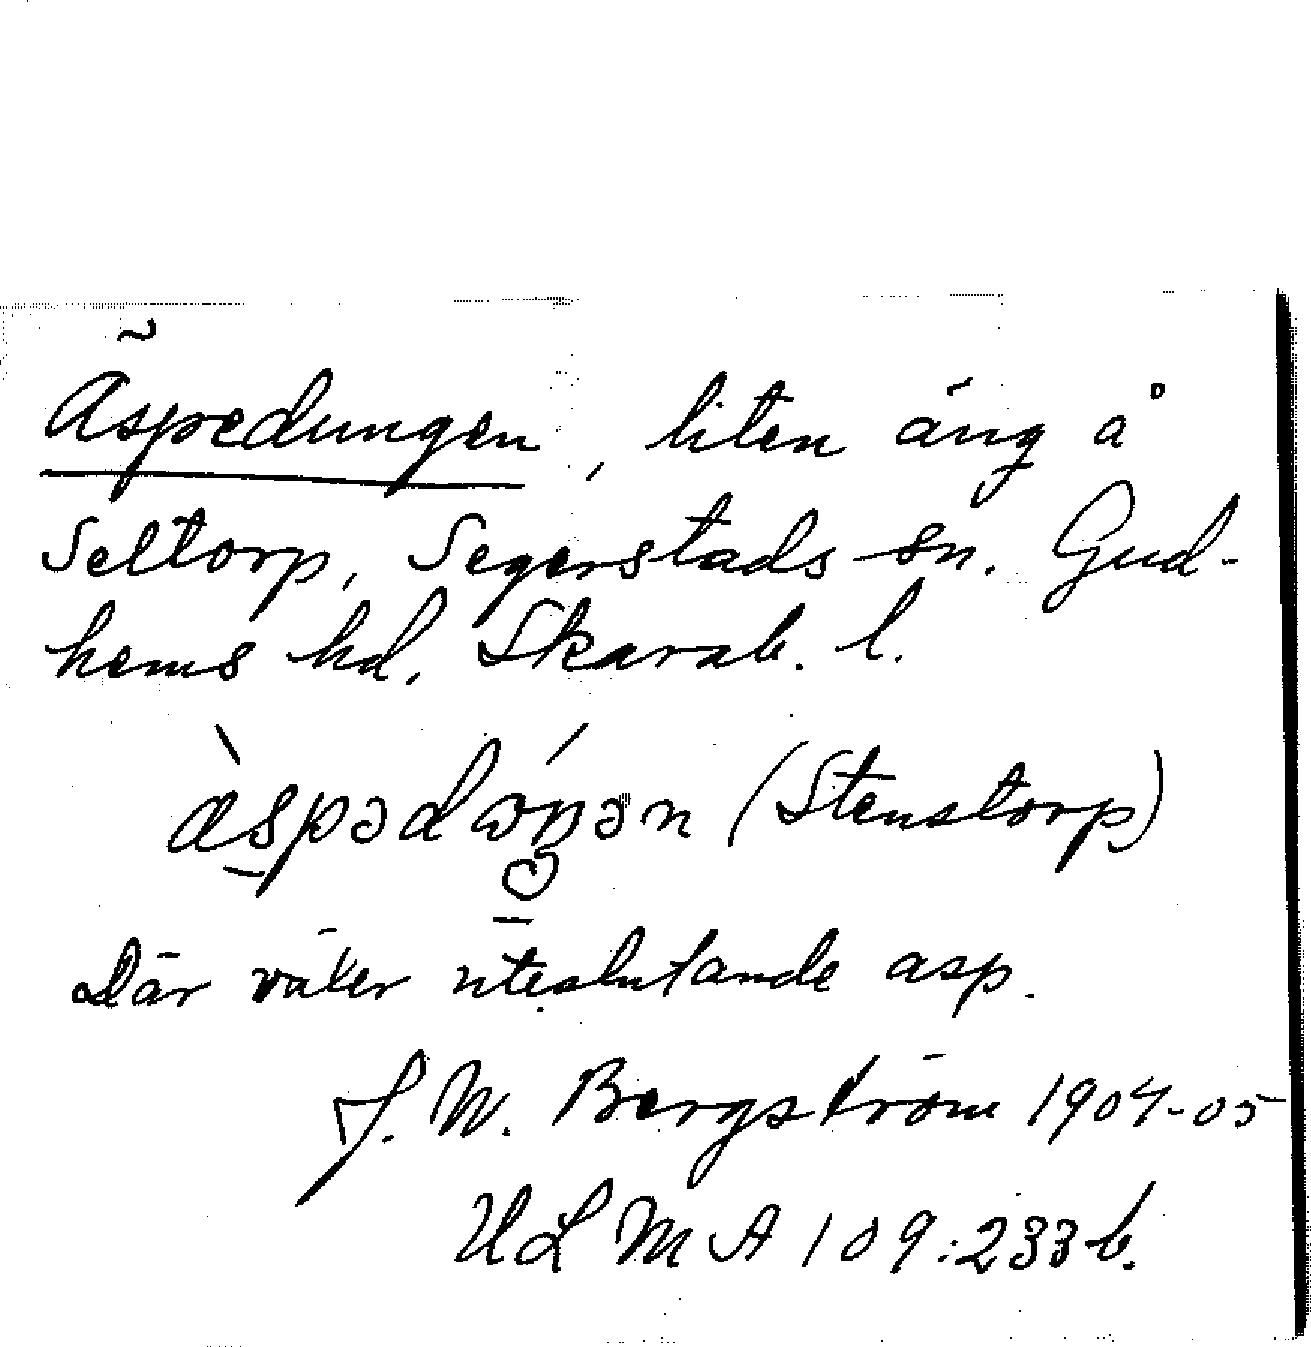 Äspedungen, liten äng å
Seltorp, Segerstads sn. Gud-
hems hd. Skarab. l.
(Stenstorp)
Där väker uteslutande asp.
J. W. Bergström 1904-05
ULMA 109:233 b.